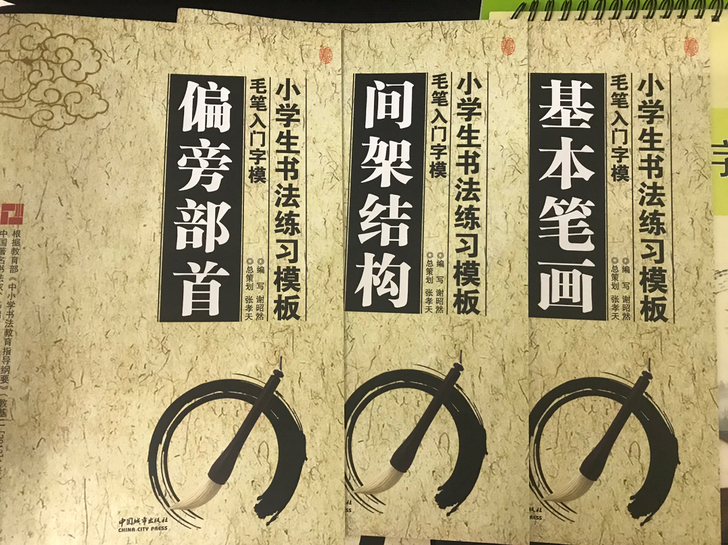 偏旁部首
毛笔入门字模
小学生书法练习模板
◎编 写 谢昭然
◎总策划 张孝天
根据教育部《中小学书法教育指导纲要》
中国城市出版社
CHINA CITY PRESS
间架结构
毛笔入门字模
小学生书法练习模板
◎编 写 谢昭然
◎总策划 张孝天
基本笔画
毛笔入门字模
小学生书法练习模板
◎编 写 谢昭然
◎总策划 张孝天